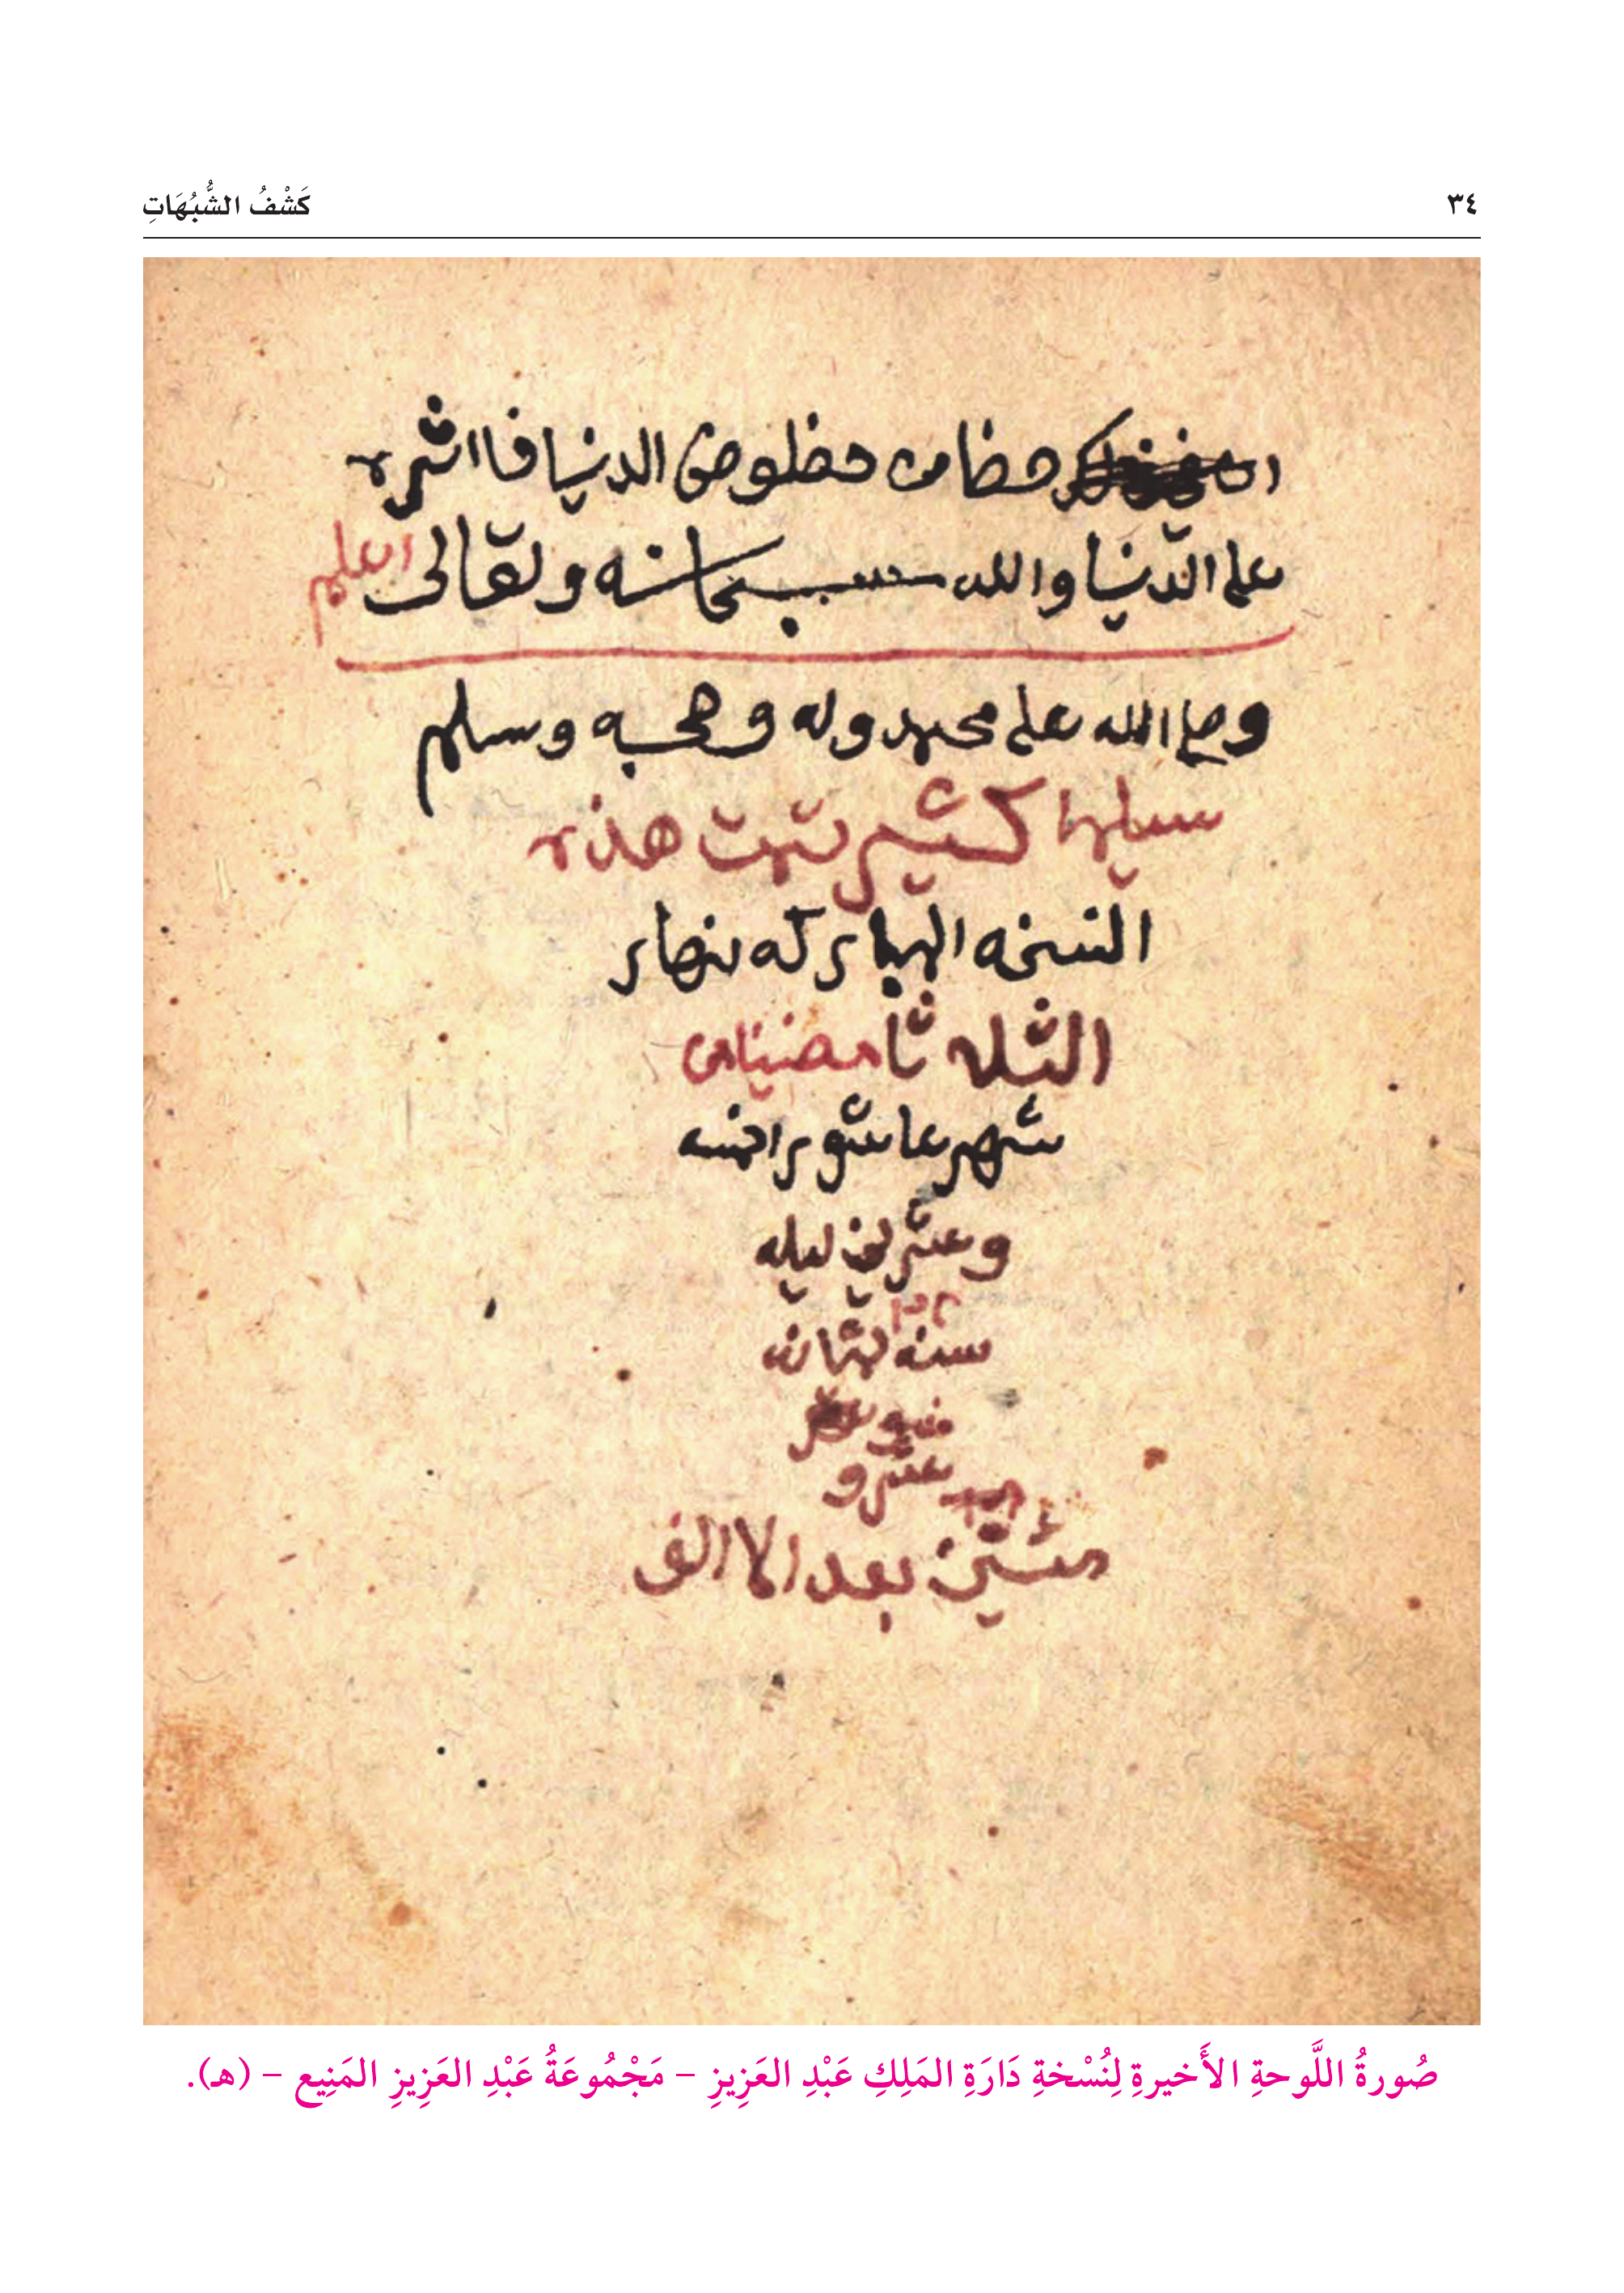 ٣٤
كَشْفُ الشُّبُهَاتِ
حضا من حظلوض الدنيا فااثره
على الدّنيا والله سبحانه وتعالى اعلم
وصلى الله على محمد وله وصحبه وسلم
سليما كثير تمت هذه
النسخه المباركه بنهار
الثله ثا مضيامن
شهر عاشور اخمسه
وعشرين ليله
سنه ثمان
عشر و
مئتين بعد الاالف
صُورةُ اللَّوحةِ الأَخيرةِ لِنُسْخةِ دَارَةِ المَلِكِ عَبْدِ العَزِيزِ – مَجْمُوعَةُ عَبْدِ العَزِيزِ المَنِيع – (هـ).